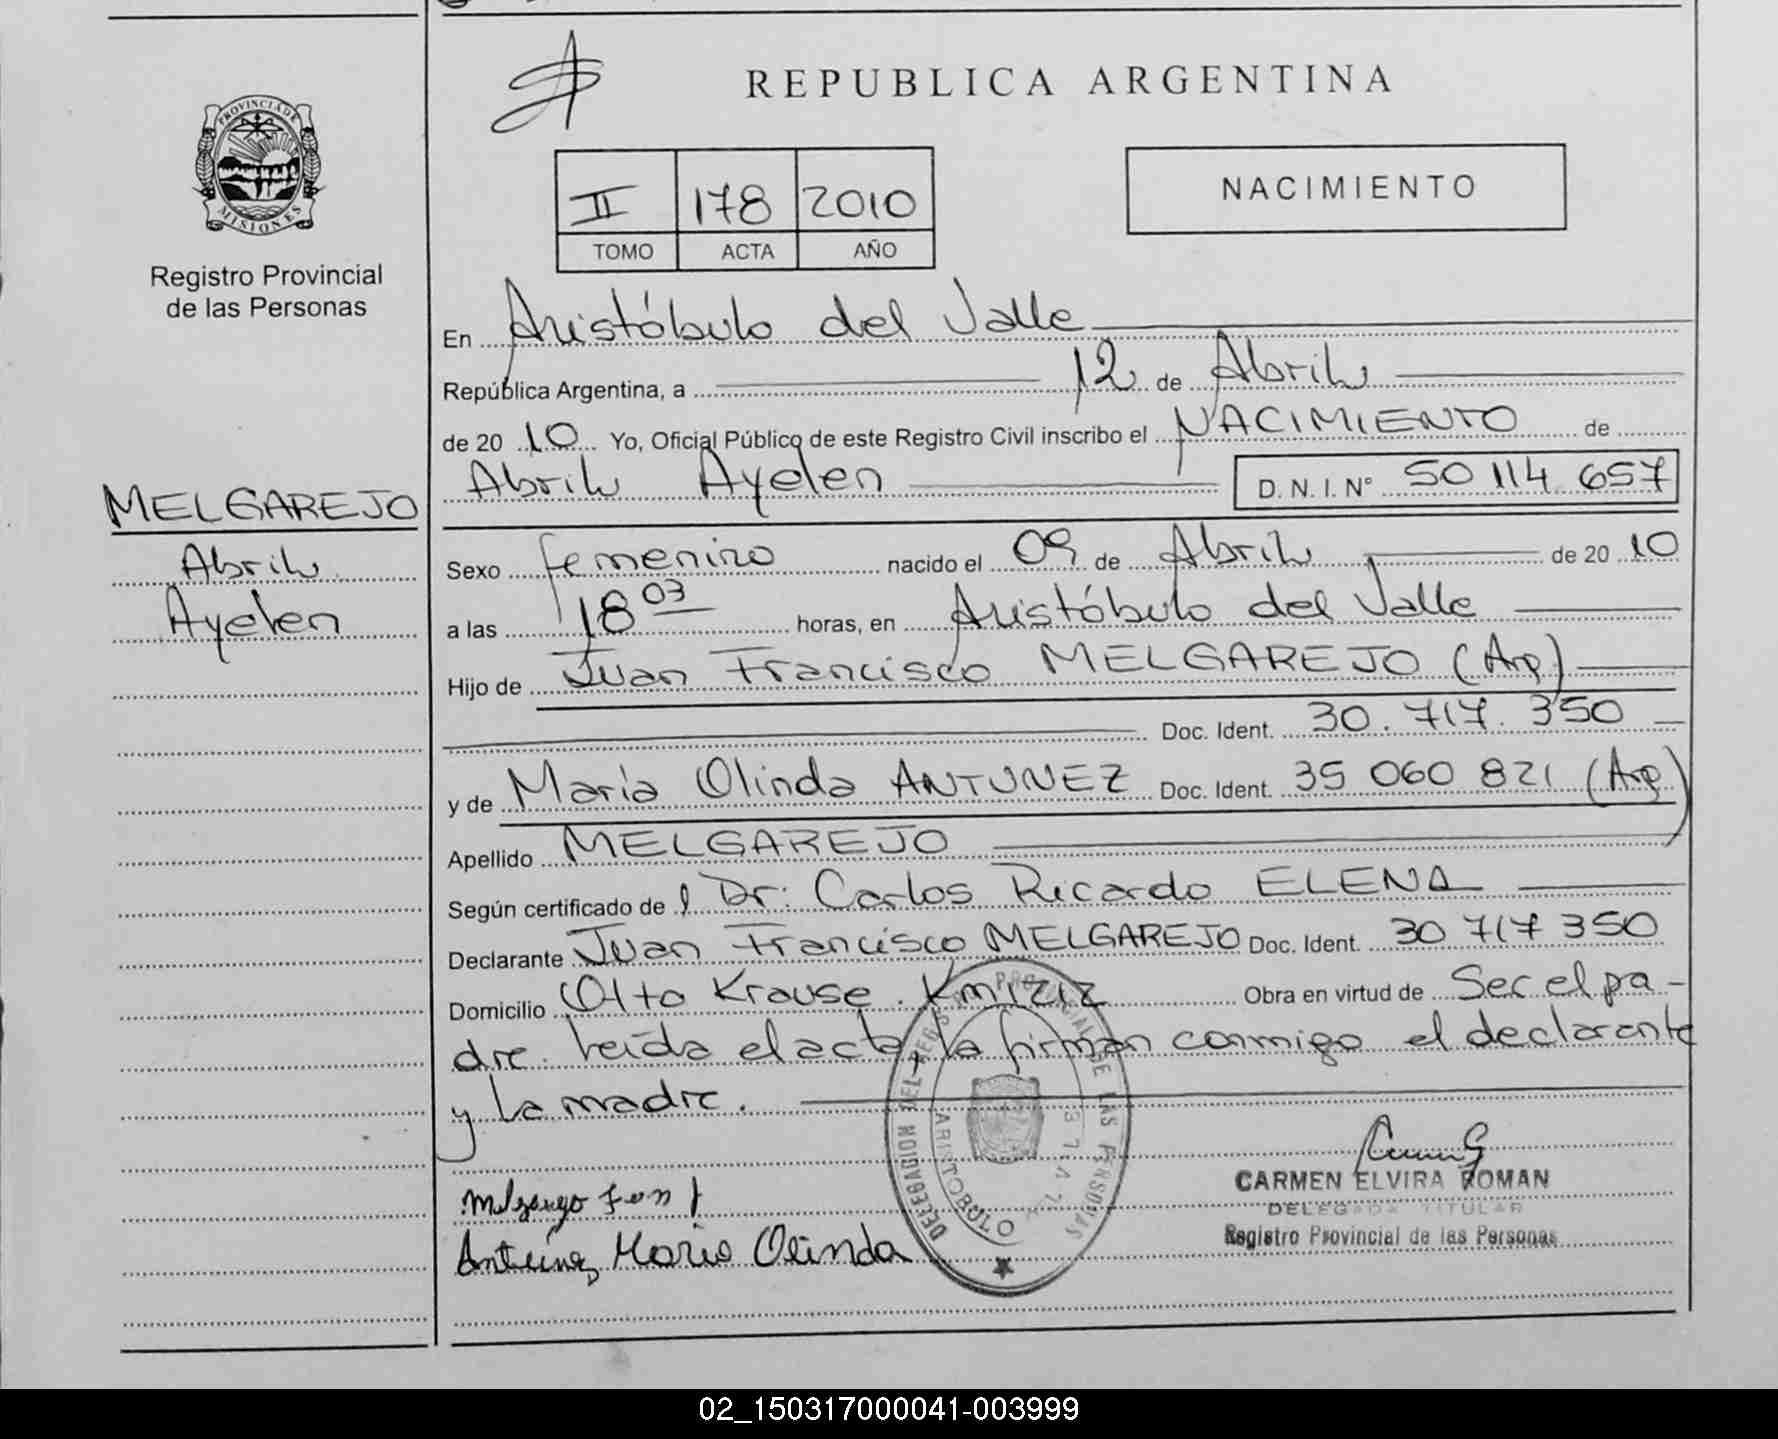 REPUBLICA ARGENTINA
PROVINCIA DE
MISIONES
Registro Provincial
de las Personas
II 178 2010
TOMO ACTA AÑO
NACIMIENTO
En Aristóbulo del Valle
República Argentina, a 12 de Abril
de 20 10 Yo, Oficial Público de este Registro Civil inscribo el NACIMIENTO de
Abril Ayelen D. N. I. Nº 50 114 657
MELGAREJO
Abril
Ayelen
Sexo femenino nacido el 09 de Abril de 20 10
a las 18 03 horas, en Aristóbulo del Valle
Hijo de Juan Francisco MELGAREJO (Arg)
Doc. Ident. 30.717.350
y de María Olinda ANTUNEZ Doc. Ident. 35 060 821 (Arg)
Apellido MELGAREJO
Según certificado de l Dr: Carlos Ricardo ELENA
Declarante Juan Francisco MELGAREJO Doc. Ident. 30 717 350
Domicilio Otto Krause. Km 1212 Obra en virtud de Ser el pa-
dre. Leída el acta, la firman conmigo el declarante
y la madre.
DELEGACION DEL REGISTRO PROVINCIAL DE LAS PERSONAS
ARISTOBULO
CARMEN ELVIRA ROMAN
DELEGADA TITULAR
Registro Provincial de las Personas
Melgarejo Juan f
Antúnez Maria Olinda
02_150317000041-003999